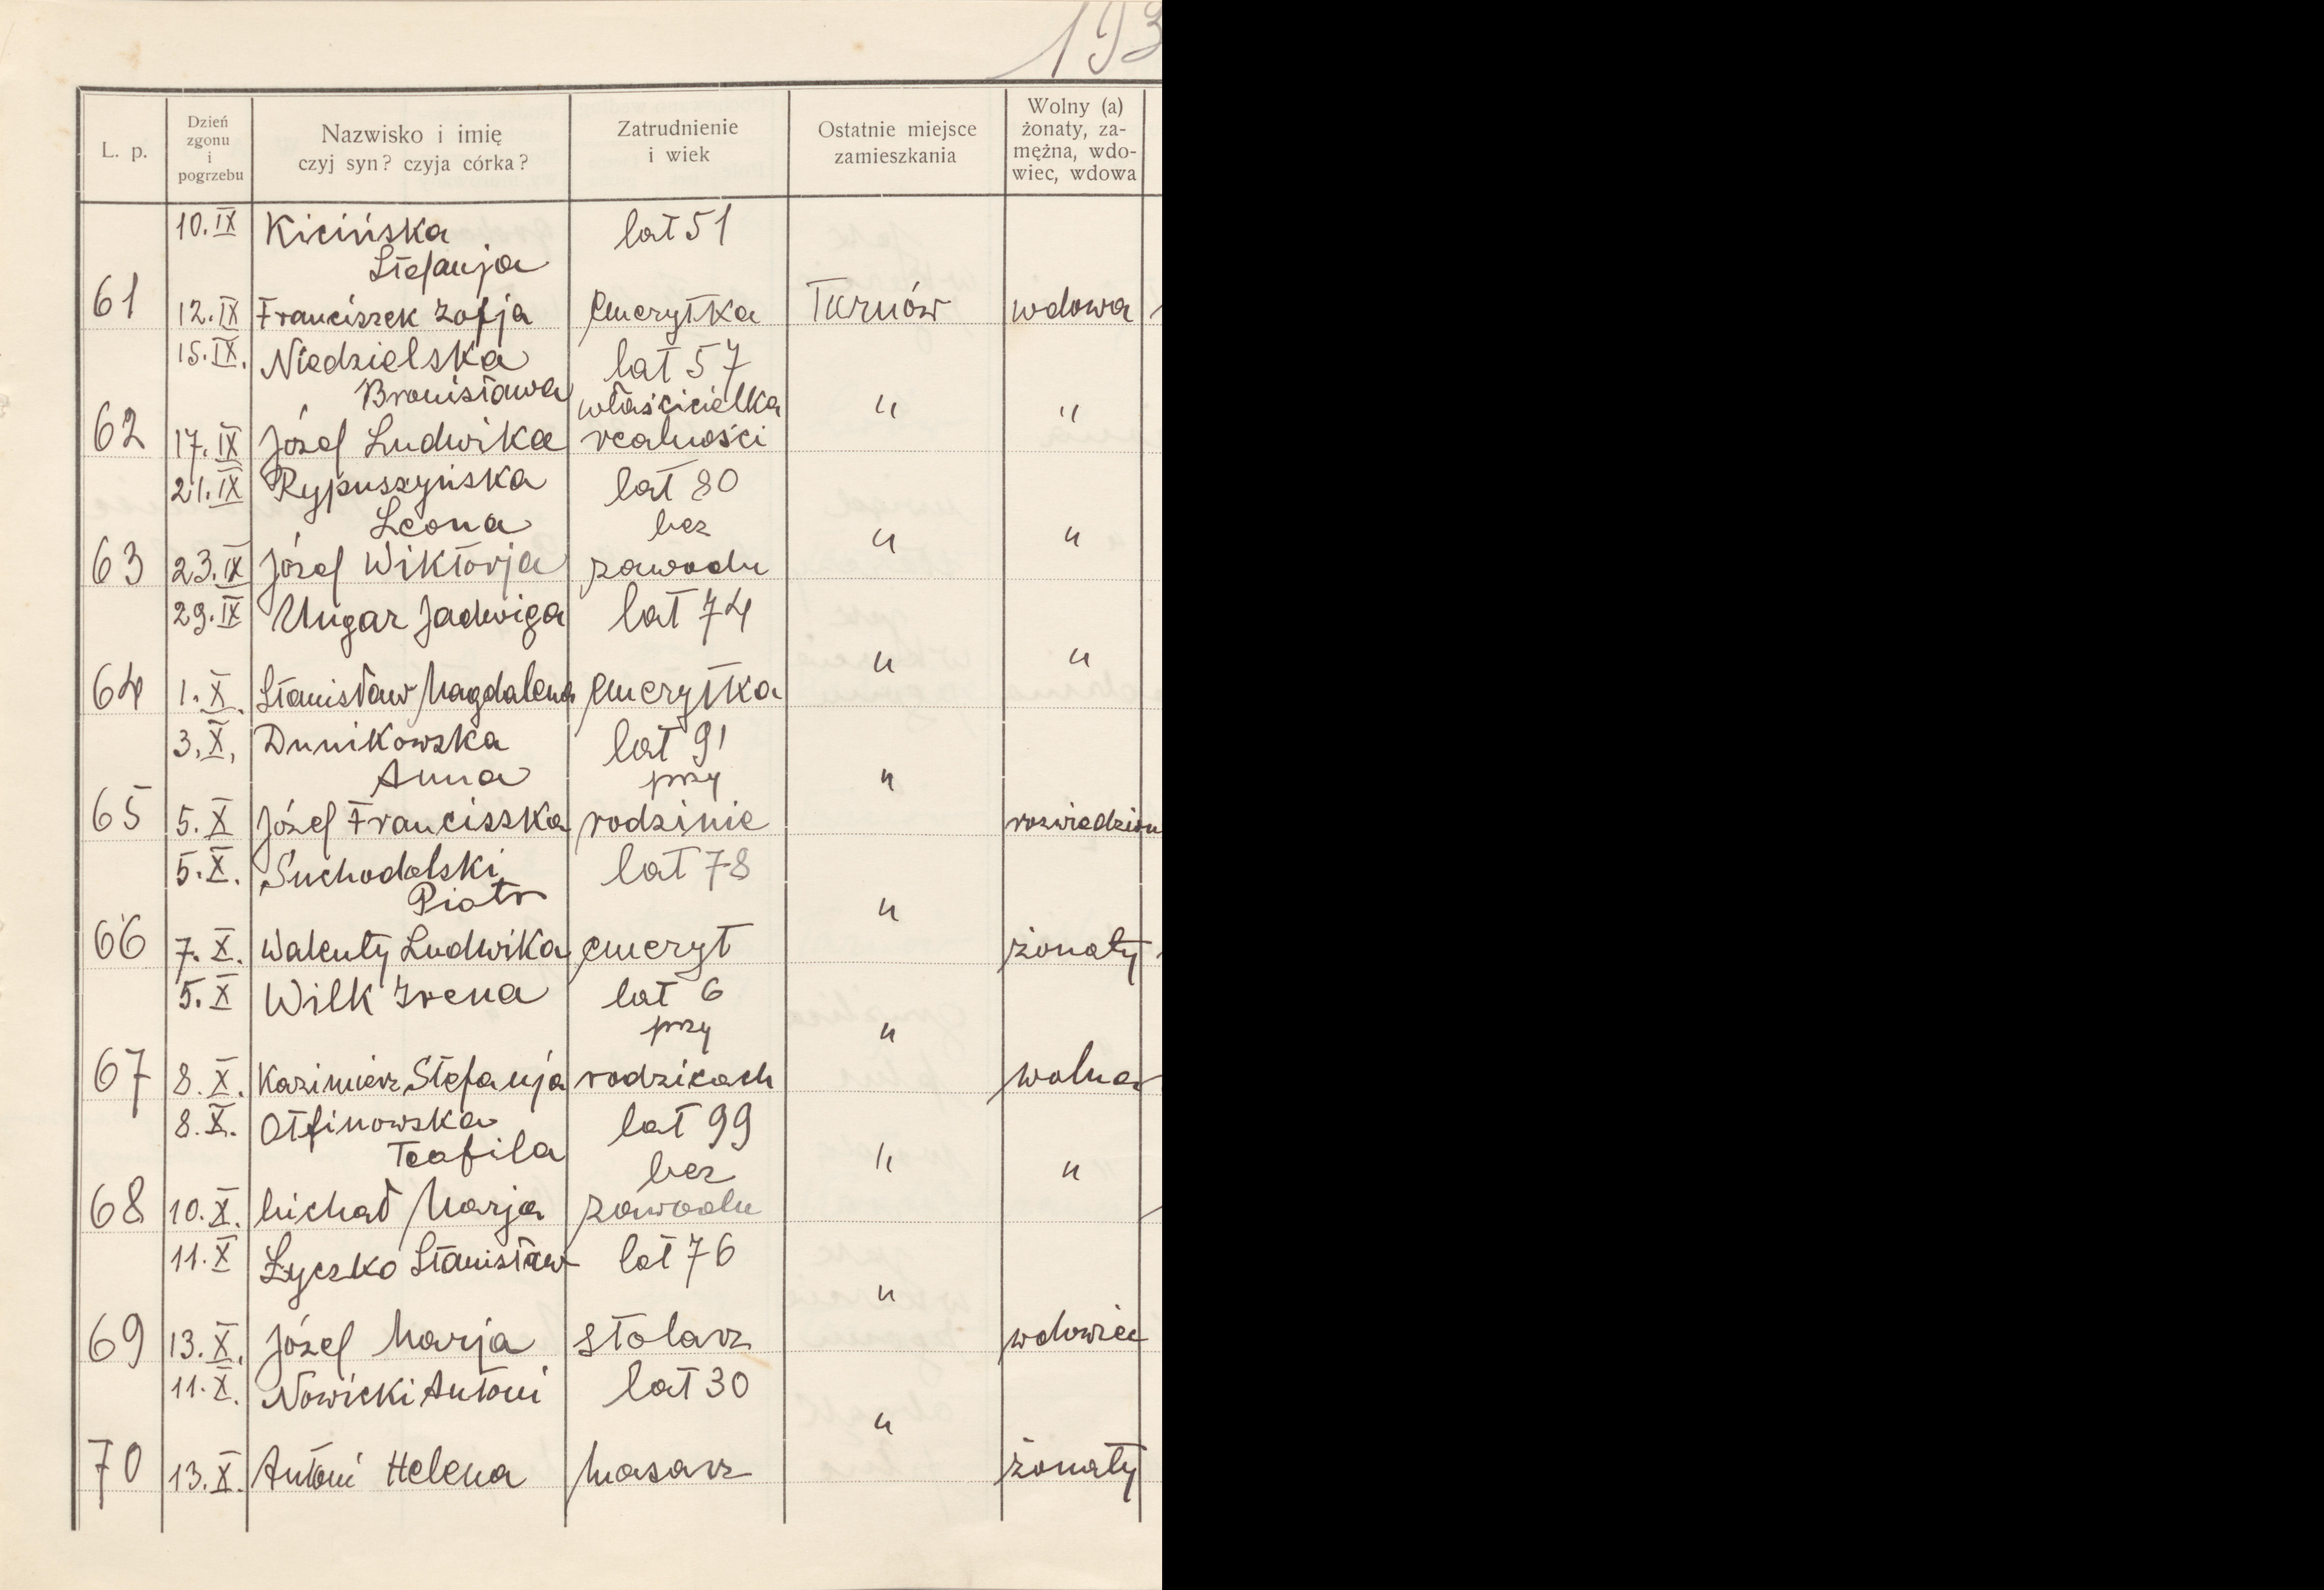 193
L. p.
Dzień
zgonu
i
pogrzebu
Nazwisko i imię
czyj syn? czyja córka?
Zatrudnienie
i wiek
Ostatnie miejsce
zamieszkania
Wolny (a)
żonaty, za-
mężna, wdo-
wiec, wdowa
10.IX Kicińska lat 51
Stefanja
61 12.IX Franciszek Zofja emerytka Tarnów wdowa
15.IX. Niedzielska lat 57
Bronisława właścicielka " "
62 17.IX Józef Ludwika realności
21.IX Rypuszyńska lat 80
Leona bez " "
63 23.IX Józef Wiktorja zawodu
29.IX Ungar Jadwiga lat 74
" "
64 1.X. Stanisław Magdalena emerytka
3.X. Dunikowska lat 91
Anna przy "
65 5.X Józef Franciszka rodzinie rozwiedzion
5.X. Suchodolski lat 78
Piotr "
66 7.X. Walenty Ludwika emeryt żonaty
5.X Wilk Irena lat 6
przy "
67 8.X. Kazimierz Stefanja rodzicach wolna
8.X. Otfinowska lat 99
Teofila bez " "
68 10.X. Michał Marja zawodu
11.X Łyczko Stanisław lat 76
"
69 13.X. Józef Marja stolarz wdowiec
11.X. Nowicki Antoni lat 30
"
70 13.X. Antoni Helena masarz żonaty